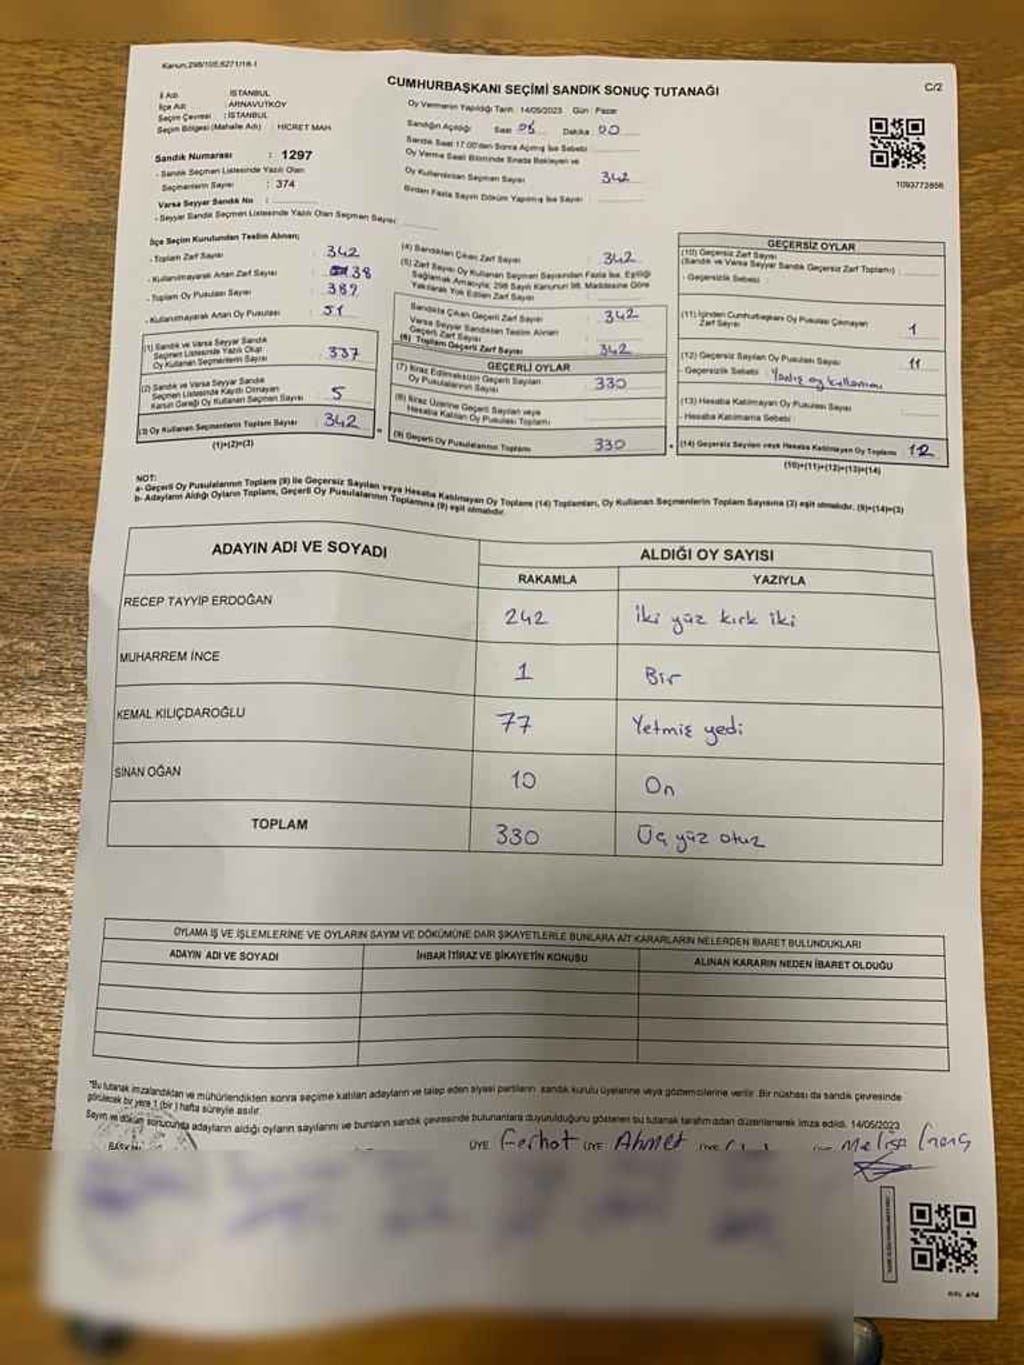 Kanun:298/105,6271/18-I
C/2
CUMHURBAŞKANI SEÇİMİ SANDIK SONUÇ TUTANAĞI
İl Adı : İSTANBUL
İlçe Adı : ARNAVUTKÖY
Seçim Çevresi : İSTANBUL
Seçim Bölgesi (Mahalle Adı) : HİCRET MAH
Oy Vermenin Yapıldığı Tarih : 14/05/2023 Gün : Pazar
Sandığın Açıldığı Saat Dakika 00
Sandık Saat 17.00'dan Sonra Açılmış İse Sebebi
Oy Verme Saati Bitiminde Sırada Bekleyen ve
Oy Kullandırılan Seçmen Sayısı 342
Birden Fazla Sayım Döküm Yapılmış İse Sayısı
1093772856
Sandık Numarası : 1297
- Sandık Seçmen Listesinde Yazılı Olan
Seçmenlerin Sayısı : 374
Varsa Seyyar Sandık No :
- Seyyar Sandık Seçmen Listesinde Yazılı Olan Seçmen Sayısı:
İlçe Seçim Kurulundan Teslim Alınan;
- Toplam Zarf Sayısı : 342
- Kullanılmayarak Artan Zarf Sayısı : 38
- Toplam Oy Pusulası Sayısı : 389
- Kullanılmayarak Artan Oy Pusulası : 51
(1) Sandık ve Varsa Seyyar Sandık
Seçmen Listesinde Yazılı Olup
Oy Kullanan Seçmenlerin Sayısı : 337
(2) Sandık ve Varsa Seyyar Sandık
Seçmen Listesinde Kaydı Olmayan
Kanun Gereği Oy Kullanan Seçmen Sayısı : 5
(3) Oy Kullanan Seçmenlerin Toplam Sayısı : 342
(1)+(2)=(3)
(4) Sandıktan Çıkan Zarf Sayısı : 342
(5) Zarf Sayısı Oy Kullanan Seçmen Sayısından Fazla İse, Eşitliği
Sağlamak Amacıyla; 298 Sayılı Kanunun 98. Maddesine Göre
Yakılarak Yok Edilen Zarf Sayısı
Sandıkta Çıkan Geçerli Zarf Sayısı : 342
Varsa Seyyar Sandıktan Teslim Alınan
Geçerli Zarf Sayısı
(6) Toplam Geçerli Zarf Sayısı 342
GEÇERLİ OYLAR
(7) İtiraz Edilmeksizin Geçerli Sayılan
Oy Pusulalarının Sayısı : 330
(8) İtiraz Üzerine Geçerli Sayılan veya
Hesaba Katılan Oy Pusulası Toplamı
(9) Geçerli Oy Pusulalarının Toplamı 330
GEÇERSİZ OYLAR
(10) Geçersiz Zarf Sayısı
(Sandık ve Varsa Seyyar Sandık Geçersiz Zarf Toplamı) :
- Geçersizlik Sebebi
(11) İçinden Cumhurbaşkanı Oy Pusulası Çıkmayan
Zarf Sayısı 1
(12) Geçersiz Sayılan Oy Pusulası Sayısı 11
- Geçersizlik Sebebi : Yanlış oy kullanımı
(13) Hesaba Katılmayan Oy Pusulası Sayısı
- Hesaba Katılmama Sebebi :
(14) Geçersiz Sayılan veya Hesaba Katılmayan Oy Toplamı 12
(10)+(11)+(12)+(13)=(14)
NOT:
a- Geçerli Oy Pusulalarının Toplamı (9) ile Geçersiz Sayılan veya Hesaba Katılmayan Oy Toplamı (14) Toplamları, Oy Kullanan Seçmenlerin Toplam Sayısına (3) eşit olmalıdır. (9)+(14)=(3)
b- Adayların Aldığı Oyların Toplamı, Geçerli Oy Pusulalarının Toplamına (9) eşit olmalıdır.
ADAYIN ADI VE SOYADI
ALDIĞI OY SAYISI
RAKAMLA YAZIYLA
RECEP TAYYİP ERDOĞAN 242 İki yüz kırk iki
MUHARREM İNCE 1 Bir
KEMAL KILIÇDAROĞLU 77 Yetmiş yedi
SİNAN OĞAN 10 On
TOPLAM 330 Üç yüz otuz
OYLAMA İŞ VE İŞLEMLERİNE VE OYLARIN SAYIM VE DÖKÜMÜNE DAİR ŞİKAYETLERLE BUNLARA AİT KARARLARIN NELERDEN İBARET BULUNDUKLARI
ADAYIN ADI VE SOYADI İHBAR İTİRAZ VE ŞİKAYETİN KONUSU ALINAN KARARIN NEDEN İBARET OLDUĞU
*Bu tutanak imzalandıktan ve mühürlendikten sonra seçime katılan adayların ve talep eden siyasi partilerin sandık kurulu üyelerine veya gözlemcilerine verilir. Bir nüshası da sandık çevresinde
görülecek bir yere 1 (bir) hafta süreyle asılır.
Sayım ve döküm sonucunda adayların aldığı oyların sayılarını ve bunların sandık çevresinde bulunanlara duyurulduğunu gösteren bu tutanak tarafımızdan düzenlenerek imza edildi. 14/05/2023
ÜYE Ferhat ÜYE Ahmet Melisa